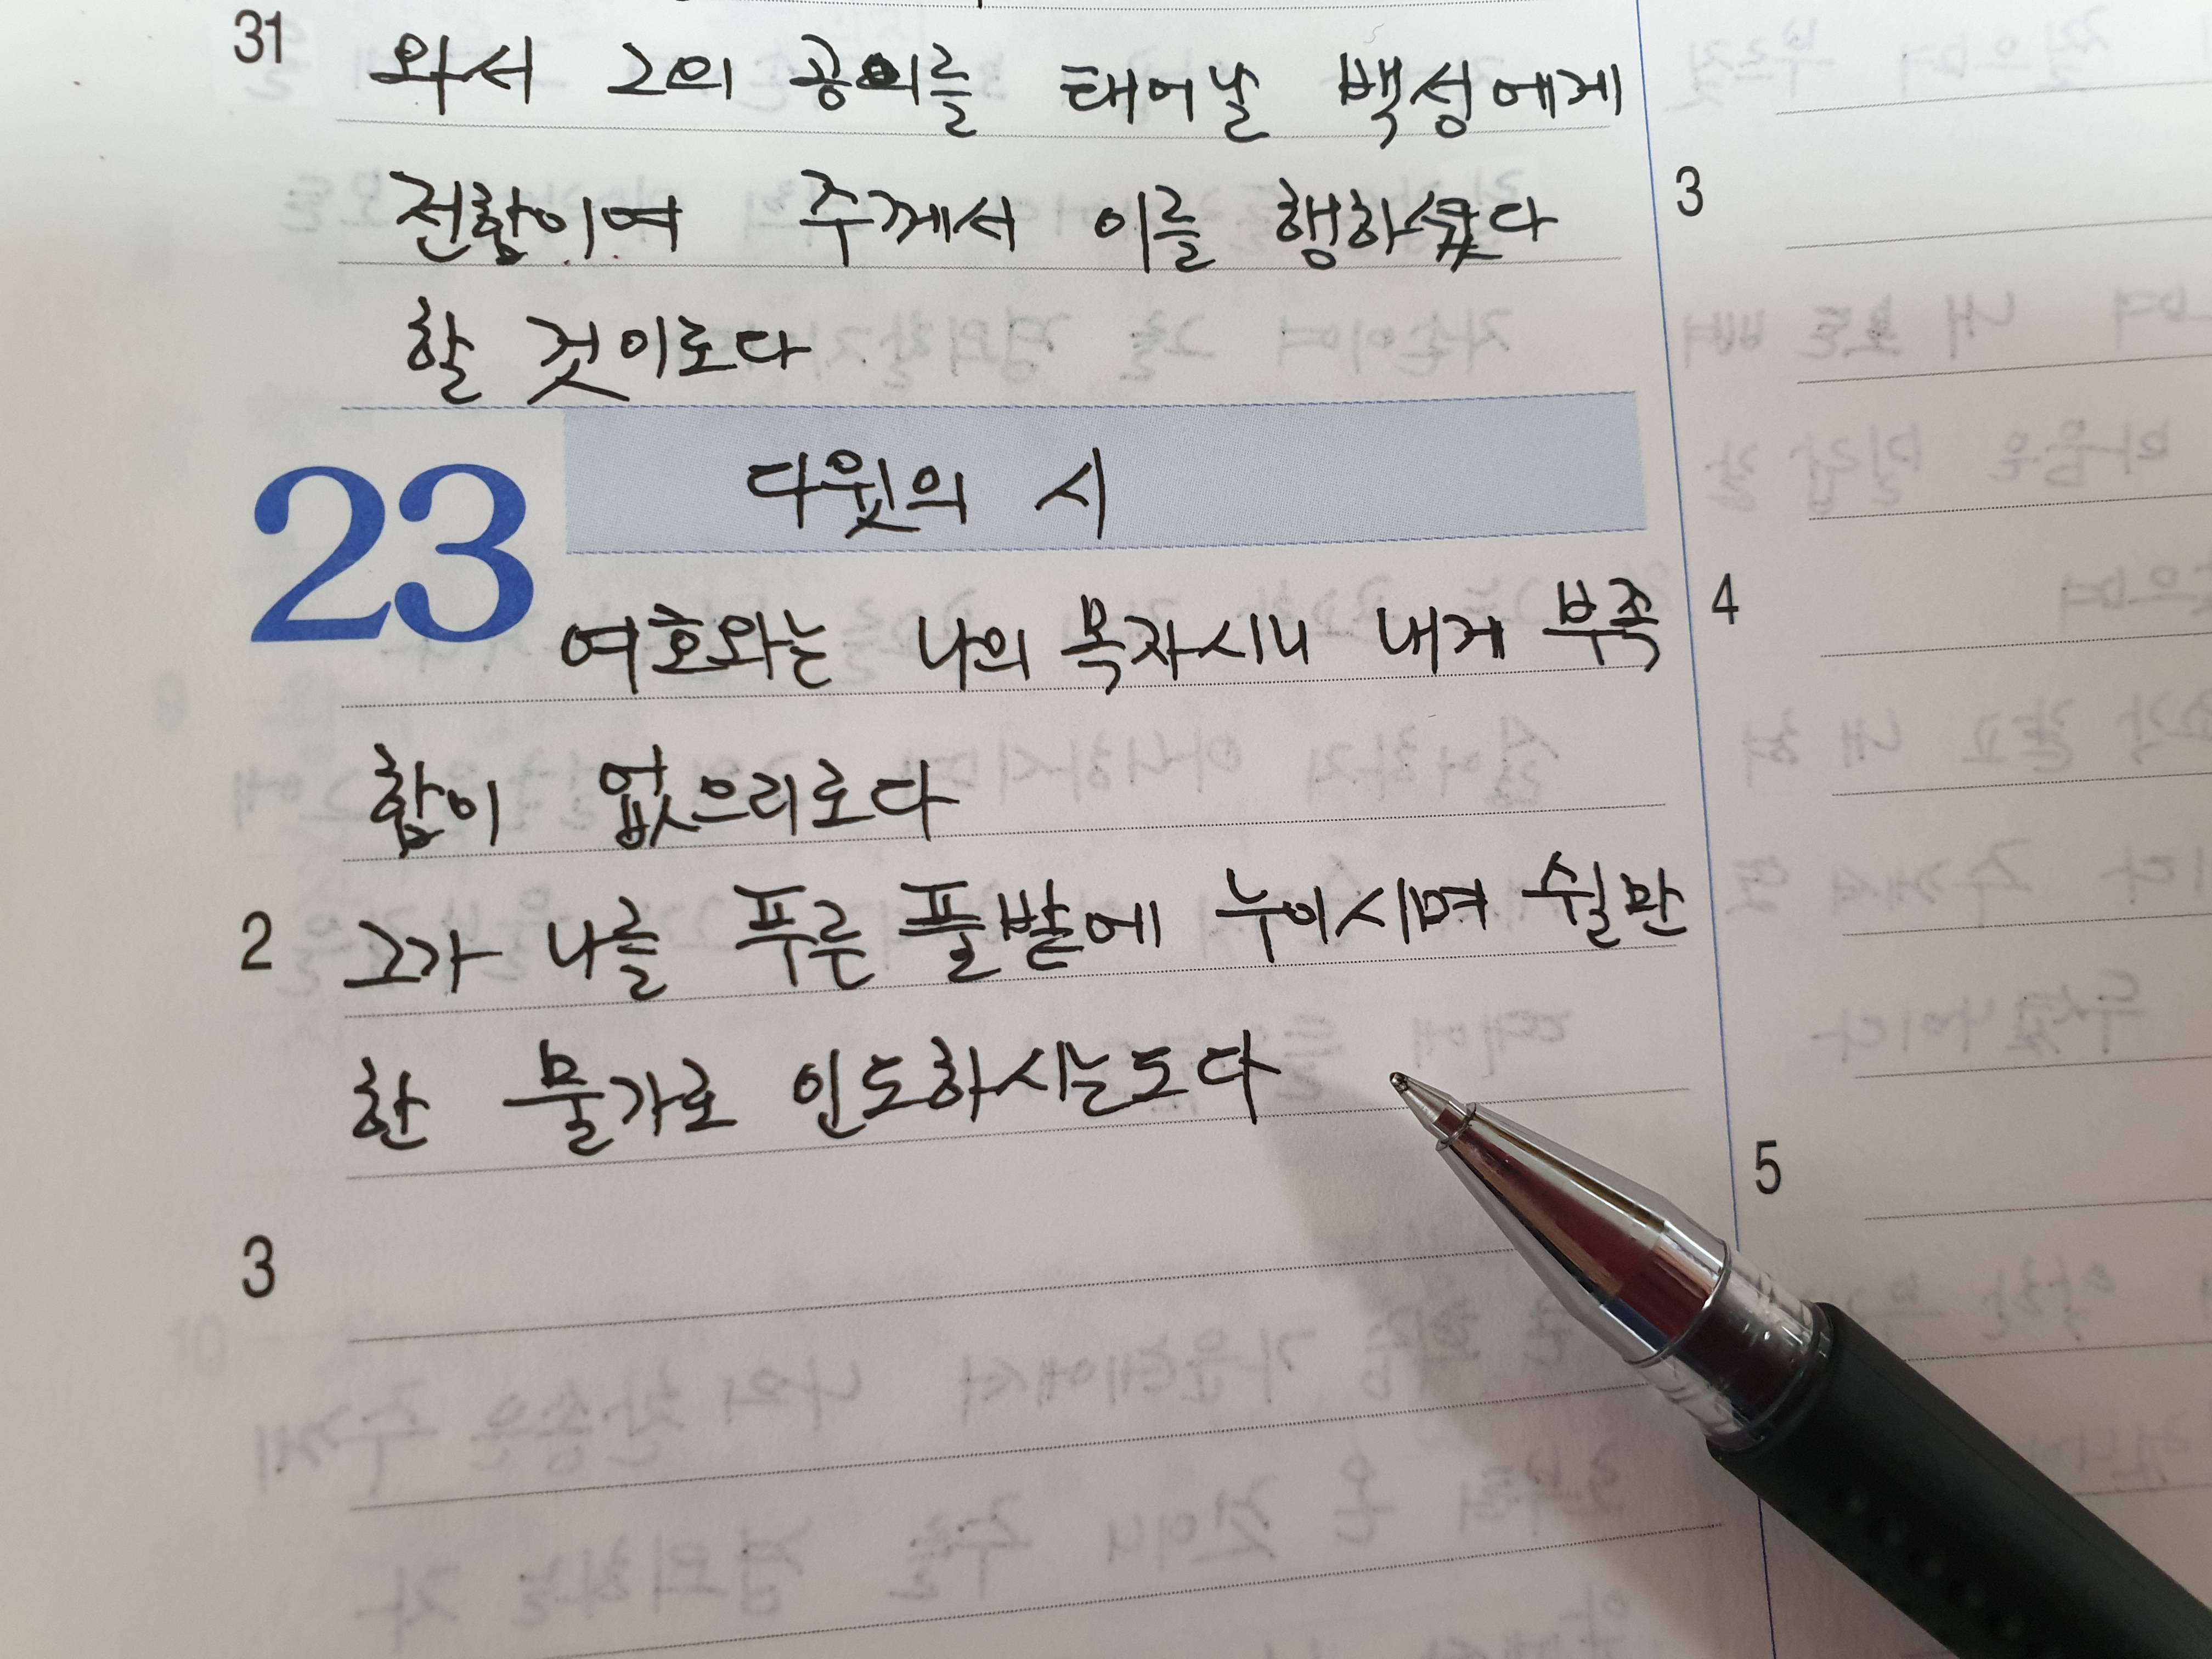 31 와서 그의 공의를 태어날 백성에게
전함이여 주께서 이를 행하셨다
할 것이로다
23 다윗의 시
여호와는 나의 목자시니 내게 부족
함이 없으리로다
2 그가 나를 푸른 풀밭에 누이시며 쉴만
한 물가로 인도하시는도다
3
3
4
5